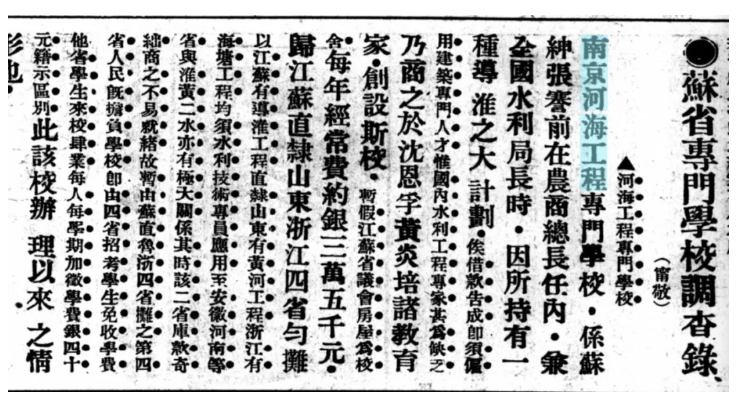 ●蘇省專門學校調查錄
（甯敬）
▲河海工程專門學校
南京河海工程專門學校・係蘇
紳張謇前在農商總長任內・兼
全國水利局長時・因所持有一
種導淮之大計劃・俟借款告成卽須僱
用建築專門人才惟國內水利工程專家甚爲缺乏
乃商之於沈恩孚黃炎培諸敎育
家・創設斯校・暫假江蘇省議會房屋爲校
舍・每年經常費約銀三萬五千元・
歸江蘇直隸山東浙江四省勻攤
以江蘇有導淮工程直隸山東有黃河工程浙江有
海塘工程均須水利技術專員應用至安徽河南等
省與淮黃二水亦有極大關係其時該二省庫款奇
絀商之不易就緒故暫由蘇直魯浙四省攤之第四
省人民旣擔負學校卽由四省招考學生免收學費
他省學生來校肄業每人每學期加徵學費銀四十
元藉示區別此該校辦理以來之情
形也